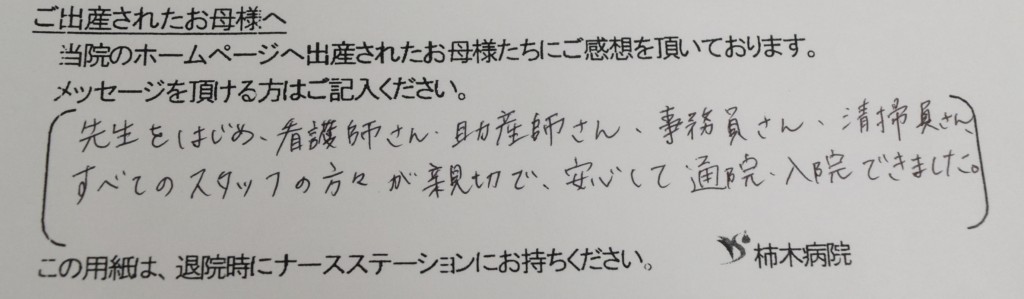 ご出産されたお母様へ
当院のホームページへ出産されたお母様たちにご感想を頂いております。
メッセージを頂ける方はご記入ください。
先生をはじめ、看護師さん、助産師さん、事務員さん、清掃員さん、
すべてのスタッフの方々が親切で、安心して通院、入院できました。
この用紙は、退院時にナースステーションにお持ちください。
柿木病院